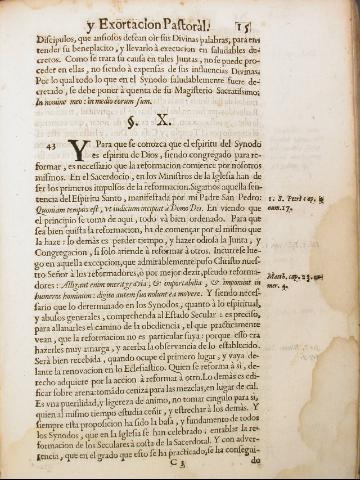 y Exortacion Pastoral. 15
Discipulos, que ansiosos desean oir sus Divinas palabras, para en-
tender su beneplacito, y llevarlo à execucion en saludables de-
cretos. Como se trata su causa en tales Juntas, no se puede pro-
ceder en ellas, no siendo à expensas de sus influencias Divinas.
Por lo qual todo lo que en el Synodo saludablemente fuere de-
cretado, se debe poner à quenta de su Magisterio Sacratissimo:
In nomine meo: in medio eorum sum.
§. X.
43 Y Para que se conozca que el espiritu del Synodo
es espiritu de Dios, siendo congregado para re-
formar, es necessario que la reformacion comience por nosotros
mismos. En el Sacerdocio, en los Ministros de la Iglesia han de
ser los primeros impulsos de la reformacion. Sigamos aquella sen-
tencia del Espiritu Santo, manifestada por mi Padre San Pedro:
Quoniam tempus est, ut iudicium incipiat à Domo Dei. En viendo que
el principio se toma de aqui, todo và bien ordenado. Para que
sea bien quista la reformacion, ha de començar por el mismo que
la haze: lo demàs es perder tiempo, y hazer odiosa la Junta, y
Congregacion, si solo atiende à reformar à otros. Incurrese lue-
go en aquella excepcion, que admirablemente puso Christo nues-
tro Señor à los reformadores, ò por mejor dezir, pseudo reforma-
dores: Alligant enim onera gravia, & importabilia, & imponunt in
humeros hominum: digito autem suo nolunt ea movere. Y siendo neces-
sario que lo determinado en los Synodos, quanto à lo espiritual,
y abusos generales, comprehenda al Estado Secular: es preciso,
para allanarles el camino de la obediencia, el que practicamente
vean, que la reformacion no es particular suya: porque esso es
hazerles muy amarga, y acerba la observancia de lo establecido.
Serà bien recibida, quando ocupe el primero lugar, y vaya de-
lante la renovacion en lo Eclesiastico. Quien se reforma à sì, de-
recho adquiere por la accion à reformar à otro. Lo demàs es edi-
ficar sobre arena: tomado ceniza para las mezclas, en lugar de cal.
Es una puerilidad, y ligereza de animo, no tomar cingulo para sì,
quien al mismo tiempo estudia ceñir, y estrechar à los demàs. Y
siempre esta proposicion ha sido la basa, y fundamento de todos
los Synodos, que en la Iglesia se han celebrado: entablar la re-
formacion de los Seculares à costa de la Sacerdotal. Y con adver-
tencia, que en el grado que esto se ha practicado, se ha consegui-
C 3 do
1. B. Petri cap. 4.
num. 17.
Matth. cap. 23.
mer. 4.